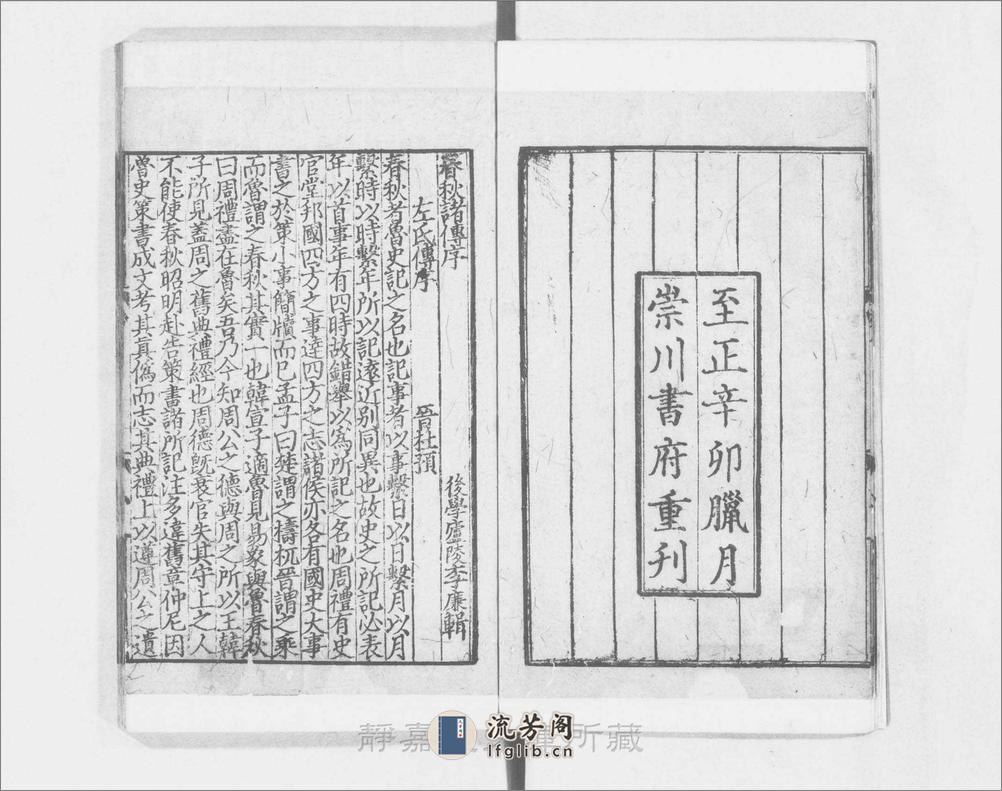 至正辛卯臘月
崇川書府重刊
春秋諸傳序
後學廬陵李廉輯
左氏傳序
晉杜預
春秋者魯史記之名也記事者以事繫日以日繫月以月
繫時以時繫年所以記遠近别同異也故史之所記必表
年以首事年有四時故錯舉以為所記之名也周禮有史
官掌邦國四方之事達四方之志諸侯亦各有國史大事
書之於策小事簡牘而已孟子曰楚謂之檮杌晉謂之乘
而魯謂之春秋其實一也韓宣子適魯見易象與魯春秋
曰周禮盡在魯矣吾乃今知周公之德與周之所以王韓
子所見蓋周之舊典禮經也周德既衰官失其守上之人
不能使春秋昭明赴告策書諸所記注多違舊章仲尼因
魯史策書成文考其真偽而志其典禮上以遵周公之遺
靜嘉
所藏
流芳阁
lfglib.cn